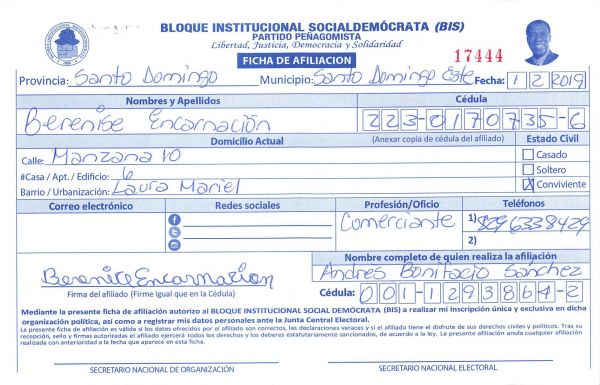 BLOQUE INSTITUCIONAL SOCIALDEMÓCRATA (BIS)
PARTIDO PEÑAGOMISTA
Libertad, Justicia, Democracia y Solidaridad
FICHA DE AFILIACION
17444
Provincia: Santo Domingo Municipio: Santo Domingo Este Fecha: 1 2 2019
Nombres y Apellidos Cédula
Berenise Encarnación 223-0170735-6
Domicilio Actual (Anexar copia de cédula del afiliado) Estado Civil
Calle: Manzana 10 Casado
#Casa / Apt. / Edificio: 6 Soltero
Barrio / Urbanización: Laura Mariel X Conviviente
Correo electrónico Redes sociales Profesión/Oficio Teléfonos
Comerciante 1) 829 6338429
2)
Nombre completo de quien realiza la afiliación
Berenice Encarnacion Andrés Bonifacio Sanchez
Firma del afiliado (Firme igual que en la Cédula) Cédula: 001-1293864-2
Mediante la presente ficha de afiliación autorizo al BLOQUE INSTITUCIONAL SOCIAL DEMÓCRATA (BIS) a realizar mi inscripción única y exclusiva en dicha
organización política, así como a registrar mis datos personales ante la Junta Central Electoral.
La presente ficha de afiliación es válida si los datos ofrecidos por el afiliado son correctos, las declaraciones veraces y si el afiliado tiene el disfrute de sus derechos civiles y políticos. Tras su
recepción, sello y firmas autorizadas el afiliado ejercerá todos los derechos y los deberes estatutariamente sancionados, de acuerdo a la ley. La presente afiliación anula cualquier afiliación
realizada con anterioridad a la fecha que aparece en esta ficha.
SECRETARIO NACIONAL DE ORGANIZACIÓN SECRETARIO NACIONAL ELECTORAL